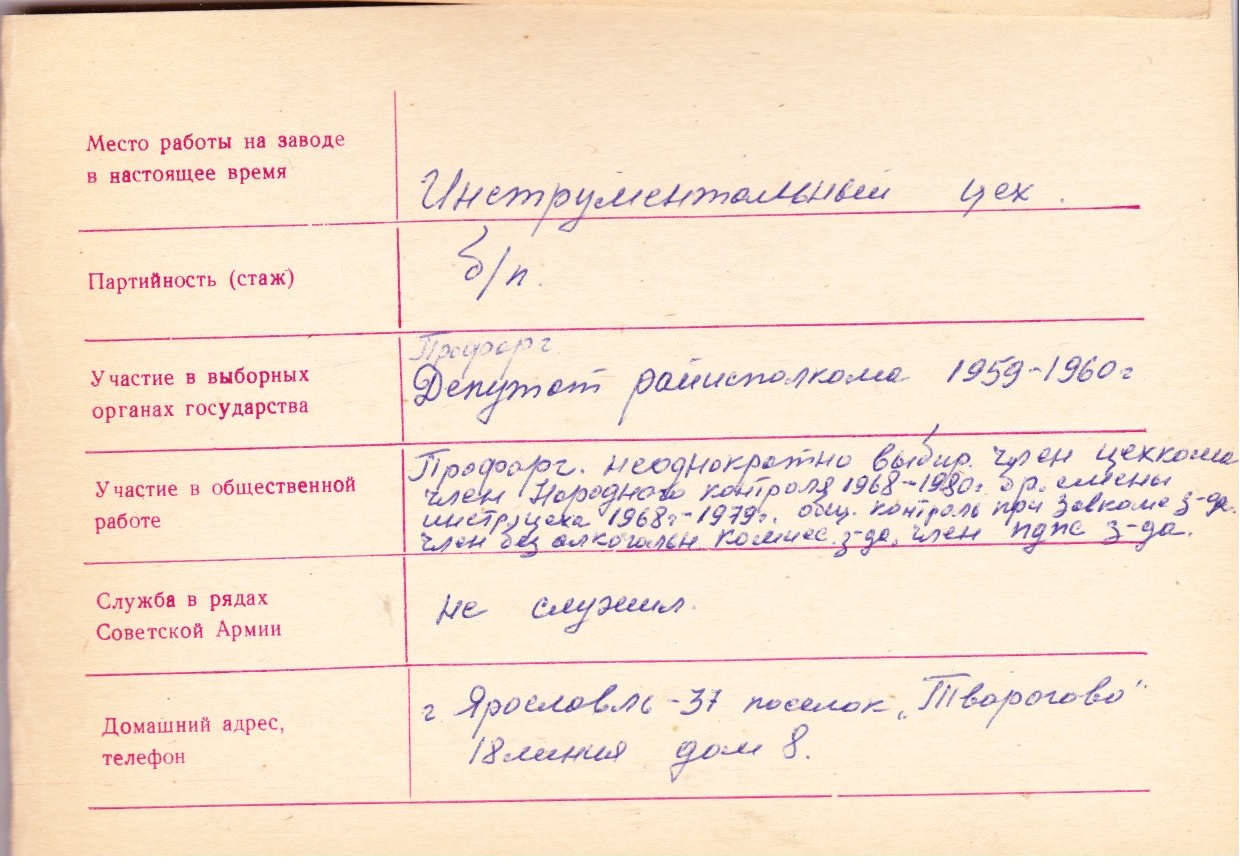 Место работы на заводе
в настоящее время
Инструментальный цех.
Партийность (стаж)
б/п.
Участие в выборных
органах государства
Профорг.
Депутат райисполкома 1959-1960г
Участие в общественной
работе
Профорг. неоднократно выбир. член цехкома
член Народного контроля 1968-1980г. бр. смены
инстр. цеха 1968г-1979г. общ. контроль при Завкоме з-да.
член без алкогольн комис. з-да, член ПДПС з-да.
Служба в рядах
Советской Армии
не служил.
Домашний адрес,
телефон
г Ярославль-37 поселок „Творогово"
18 линия дом 8.